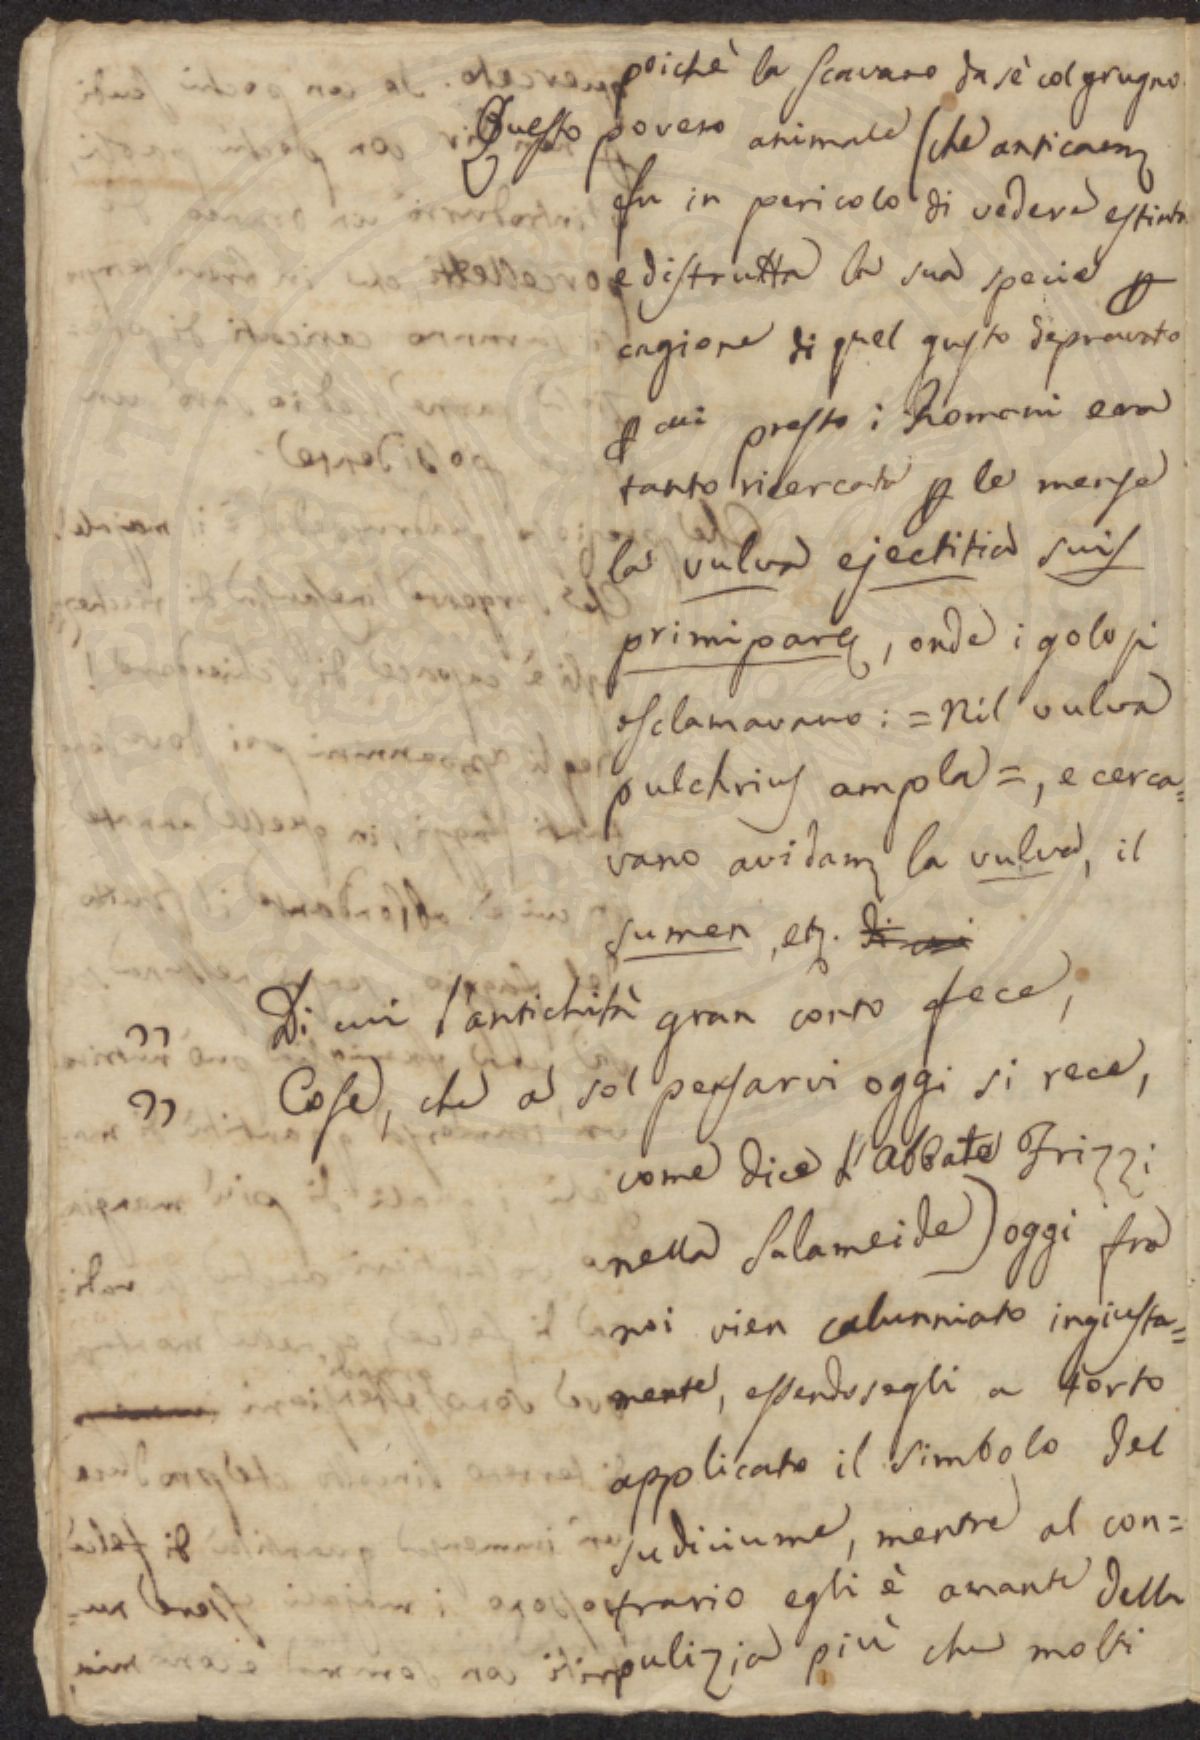 poichè la scavano da sè col grugno.
Questo povero animale (che anticam
fu in pericolo di vedere estinta
e distrutta la sua specie p
cagione di quel gusto depravato
p cui presso i Romani era
tanto ricercata p le mense
la vulva ejectitia suis
primiparæ, onde i golosi
esclamavano: = Nil vulva
pulchrius ampla =, e cerca=
vano avidam la vulva, il
sumen, etz. di cui
" Di cui l'antichità gran conto fece,
" Cose, che a sol pensarvi oggi si rece,
come dice l'Abbate Frizzi
nella Salameide) oggi fra
noi vien calunniato ingiusta=
mente, essendosegli a torto
applicato il simbolo del
sudiciume, mentre al con=
trario egli è amante della
pulizia più che molti